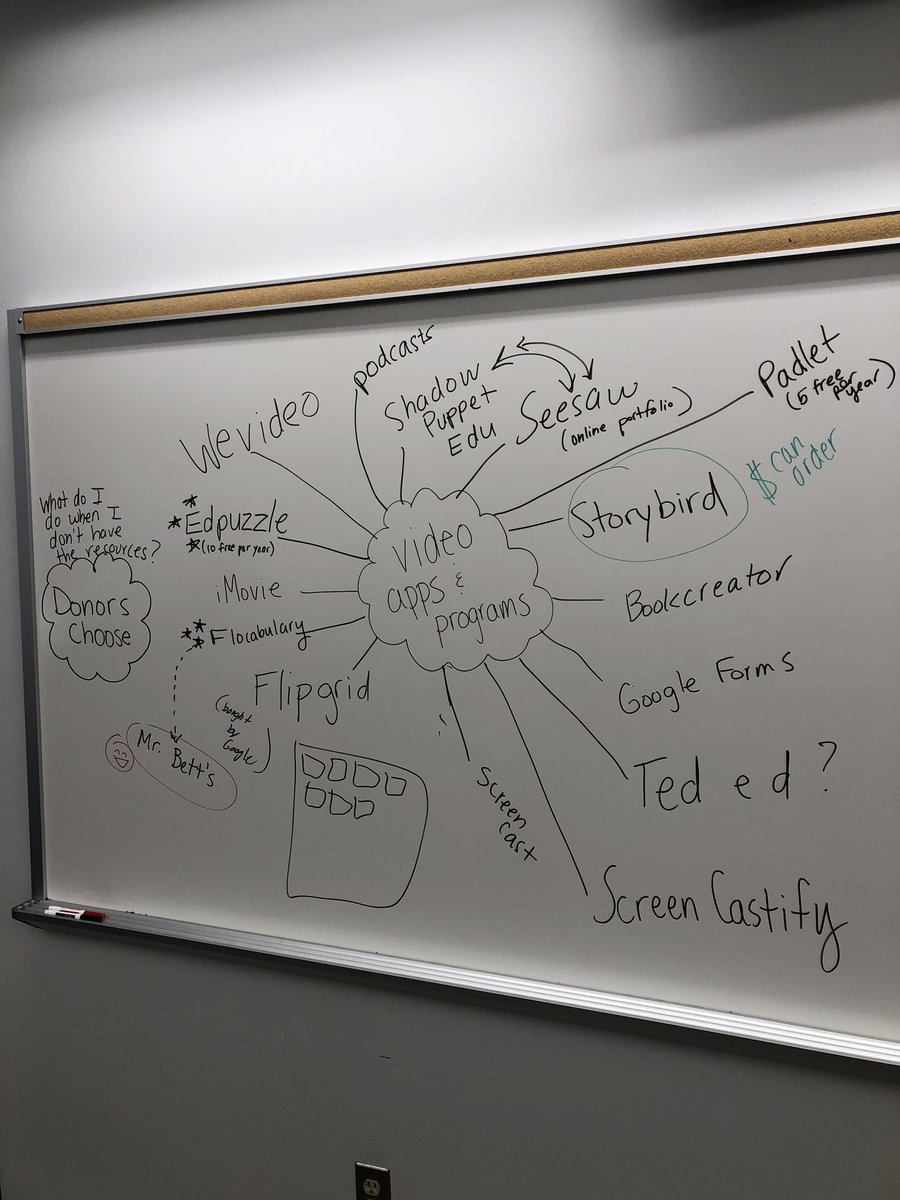 video
apps &
programs
podcasts
Shadow
Puppet
Edu
Seesaw
(online portfolio)
Padlet
(5 free
per
year)
Storybird
$ can
order
Bookcreator
Google Forms
Ted ed?
Screen Castify
Screen
Cast
Flipgrid
(bought
by
Google)
** Flocabulary
*
Mr. Bett's
iMovie
*
* Edpuzzle
* (10 free per year)
Wevideo
What do I
do when I
don't have
the resources?
Donors
Choose